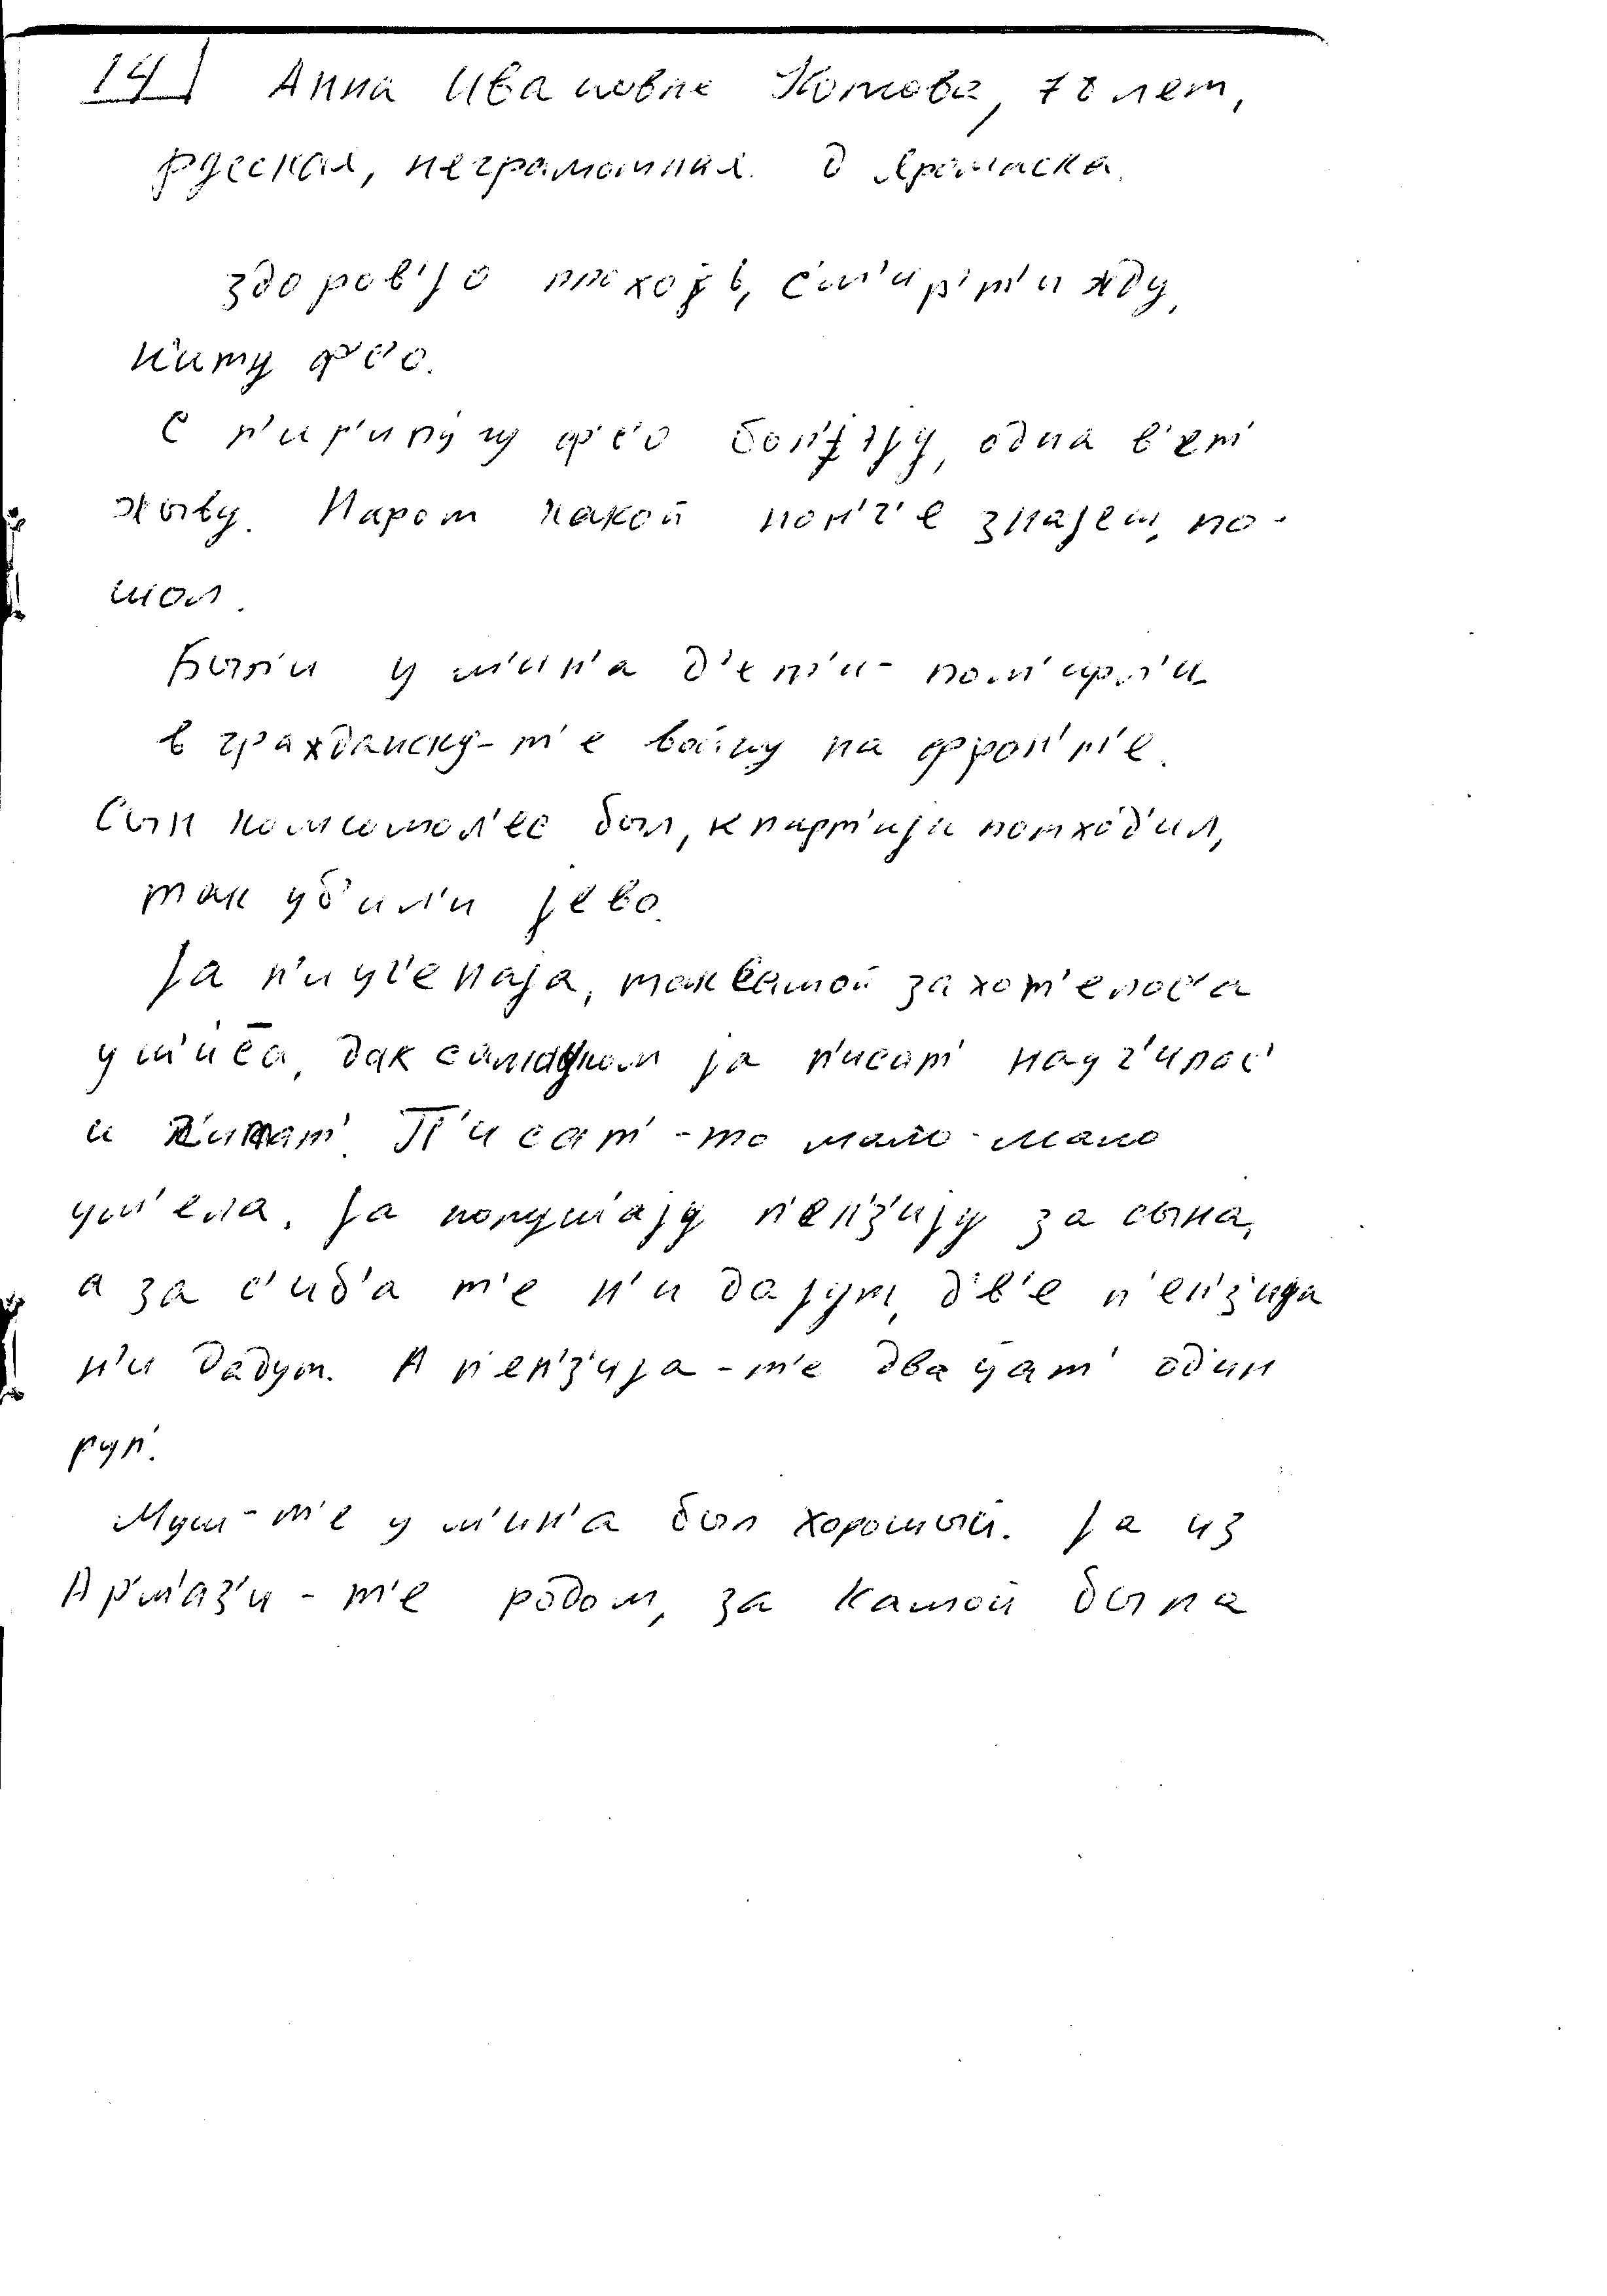 14 Анна Ивановна Котова, 78 лет,
русская, неграмотная. д Яромаска.
здоров'јо плохојь, с'м'ир'т'и жду,
н'иту ф'с'о.
С п'ир'ину ф'с'о бол'е́јгу, одна в'ет'
жыву. Нарот какой нон'ч'е знајеш, по-
шол.
Был'и у м'ин'а д'ет'и - пом'ирл'и
в гражданску-т'е војну на фрон'т'е.
Сын комсомол'ес был, к парт'ији потход'ил,
так уб'ил'и јево.
Ја н'иуч'онаја, так самой захот'елос'а
уч'ицца, дак самоуком ја п'исат' науч'илас'
и ч'итат'. П'исат'-то мало-мало
ум'ела. Ја получ'ају п'ен'з'ију за сына,
а за с'иб'а т'е н'и дајут, д'в'е п'ен'з'ији
н'и дадут. А п'ен'з'ија-т'е двацат' од'ин
руп'.
Муш-т'е у м'ин'а был хорошый. Ја из
Арм'аз'и - т'е родом, за Камой была